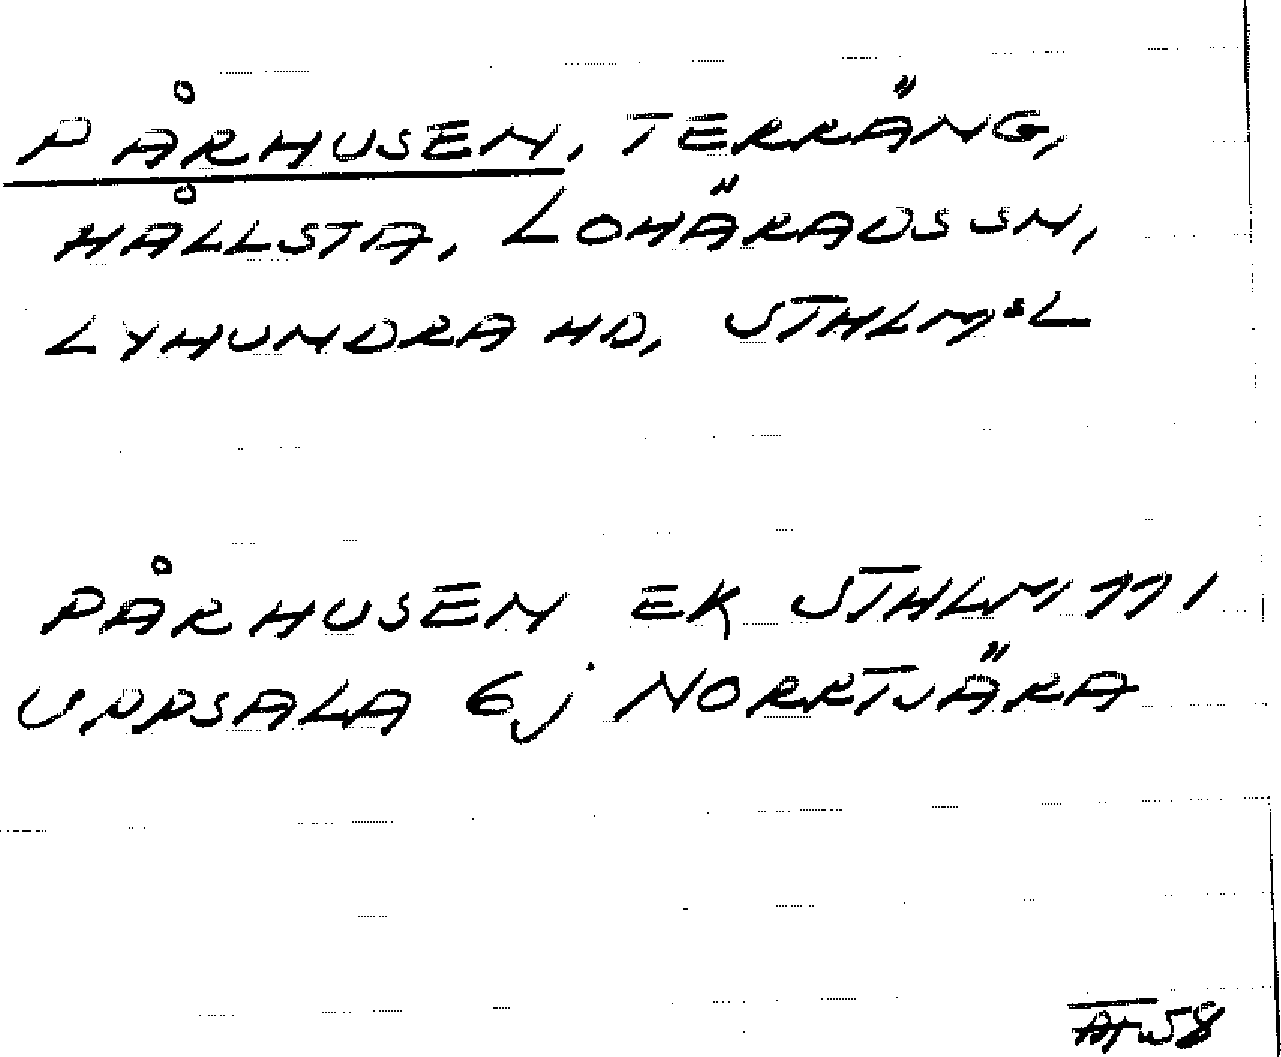 PÅRHUSEN, TERRÄNG,
HÅLLSTA, LOHÄRADS SN,
LYHUNDRA HD, STHLMSL
PÅRHUSEN EK STHLM 111
UPPSALA 6j NORRTJÄRA